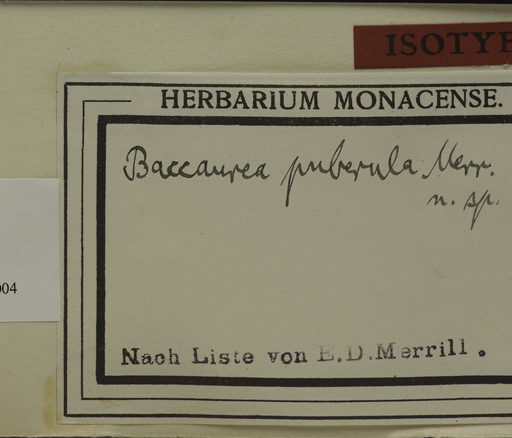 ISOTYPE
HERBARIUM MONACENSE.
Baccaurea puberula Merr.
n. sp.
004
Nach Liste von E.D.Merrill.